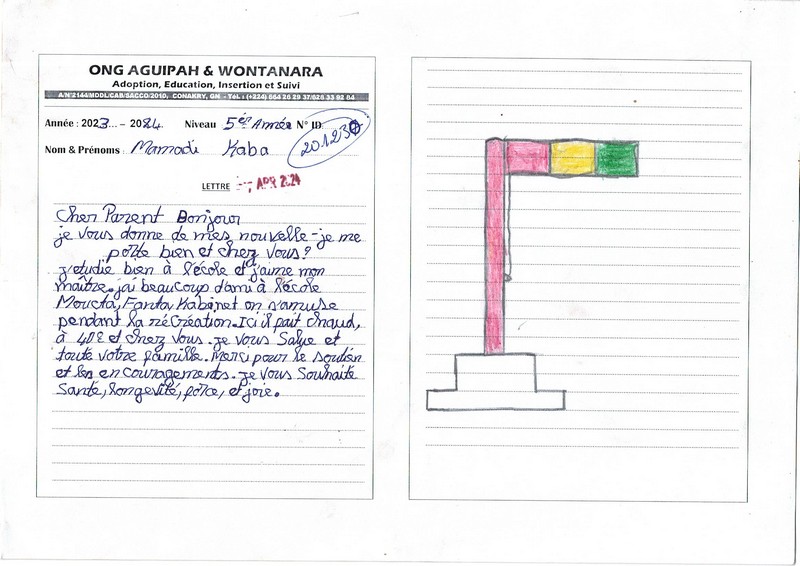 ONG AGUIPAH & WONTANARA
Adoption, Education, Insertion et Suivi
A/N°2144/MDDL/CAB/SACCO/2010, CONAKRY, GN - Tél : (+224)
Année : 2023... - 2024 Niveau 5ér Année N° ID
201230
Nom & Prénoms : Mamadi Kaba
LETTRE APR 2024
Cher Parent Bonjour
je vous donne de mes nouvelle-je me
porte bien et chez vous?
j'etudie bien à l'école et j'aime mon
maître. j'ai beaucoup d'ami à l'école
Moucta, Fanta, Kabinet on s'amuse
pendant la récréation. Ici il fait chaud,
à et chez vous. je vous Salue et
toute votre famille. Merci pour le soutien
et les encouragements. je vous Souhaite
Santé, longévité, force, et joie.